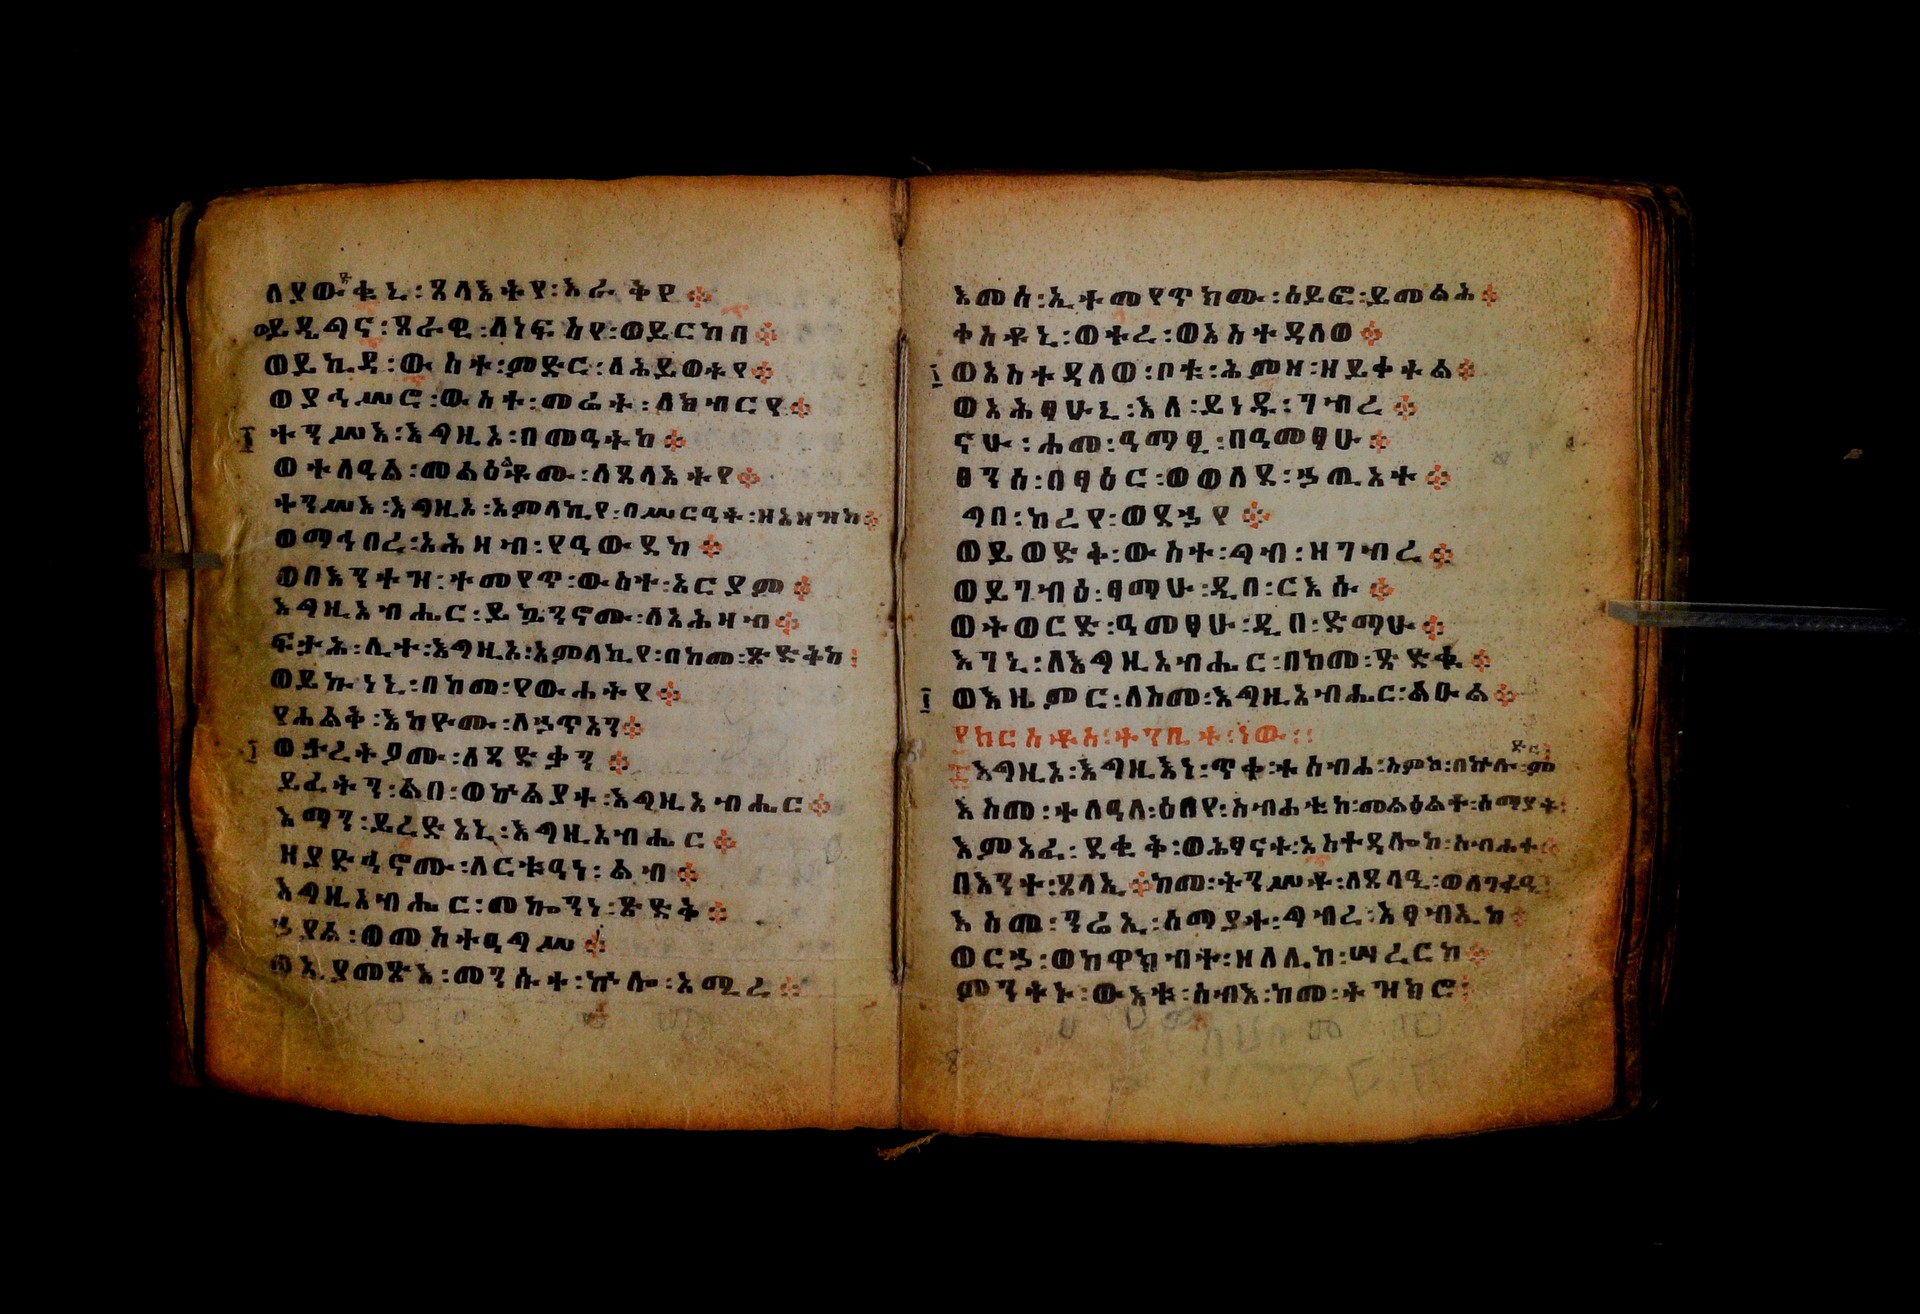 ለያውድቁኒ፡ጸላእትየ፡እራቅየ፨
ወይዴግና፡ፀራዊ፡ለነፍስየ፡ወይርከባ፨
ወይኪዳ፡ውስተ፡ምድር፡ለሕይወትየ፨
ወያኅሥሮ፡ውስተ፡መሬት፡ለክብርየ፨
ተንሥእ፡እግዚኦ፡በመዓትከ፨
ወተለዓል፡መልዕልቶሙ፡ለጸላእትየ፨
ተንሥእ፡እግዚኦ፡አምላኪየ፡በሥርዓት፡ዘአዘዝከ፨
ወማኅበረ፡አሕዛብ፡የዓውደከ፨
ወበእንተዝ፡ተመየጥ፡ውስተ፡አርያም፨
እግዚአብሔር፡ይኴንኖሙ፡ለአሕዛብ፨
ፍታሕ፡ሊተ፡እግዚኦ፡አምላኪየ፡በከመ፡ጽድቅከ፨
ወይኩነኒ፡በከመ፡የውሐትየ፨
የሐልቅ፡እከዮሙ፡ለኃጥአን፨
ወታረትዖሙ፡ለጻድቃን፨
ይፈትን፡ልበ፡ወኵልያተ፡እግዚአብሔር፨
አማን፡ይረድአኒ፡እግዚአብሔር፨
ዘያድኅኖሙ፡ለርቱዓነ፡ልብ፨
እግዚአብሔር፡መኰንነ፡ጽድቅ፨
ኃያል፡ወመስተዓግሥ፨
ወኢያመጽእ፡መንሱተ፡ኵሎ፡አሚረ፨
እመሰ፡ኢተመየጥክሙ፡ሰይፎ፡ይመልሕ፨
ቀስቶኒ፡ወተረ፡ወአስተዳለወ፨
ወአስተዳለወ፡ቦቱ፡ሕምዘ፡ዘይቀትል፨
ወአሕፃሁኒ፡እለ፡ይነዱ፡ገብረ፨
ናሁ፡ሐመ፡ዓማፂ፡በዓመፃሁ፨
ፀንሰ፡በፃዕር፡ወወለደ፡ኃጢአተ፨
ግበ፡ከረየ፡ወደኃየ፨
ወይወድቅ፡ውስተ፡ግብ፡ዘገብረ፨
ወይገብዕ፡ፃማሁ፡ዲበ፡ርእሱ፨
ወትወርድ፡ዓመፃሁ፡ዲበ፡ድማሁ፨
እገኒ፡ለእግዚአብሔር፡በከመ፡ጽድቁ፨
ወእዜምር፡ለስመ፡እግዚአብሔር፡ልዑል፨
የክርስቶስ፡ትንቢት፡ነው፡፡
እግዚኦ፡እግዚእነ፡ጥቀ፡ተሰብሐ፡ስምከ፡በኵሉ፡ምድር፡
እስመ፡ተለዓለ፡ዕበየ፡ስብሐቲከ፡መልዕልተ፡ሰማያት፡
እምአፈ፡ደቂቅ፡ወሕፃናት፡አስተዳሎከ፡ስብሐተ፨
በእንተ፡ጸላኢ፨ከመ፡ትንሥቶ፡ለጸላዒ፡ወለገፋዒ፡
እስመ፡ንሬኢ፡ሰማያት፡ግብረ፡አፃብኢከ፨
ወርኃ፡ወከዋክብት፡ዘለሊከ፡ሣረርከ፨
ምንትኑ፡ውእቱ፡ሰብእ፡ከመ፡ትዝክሮ፡